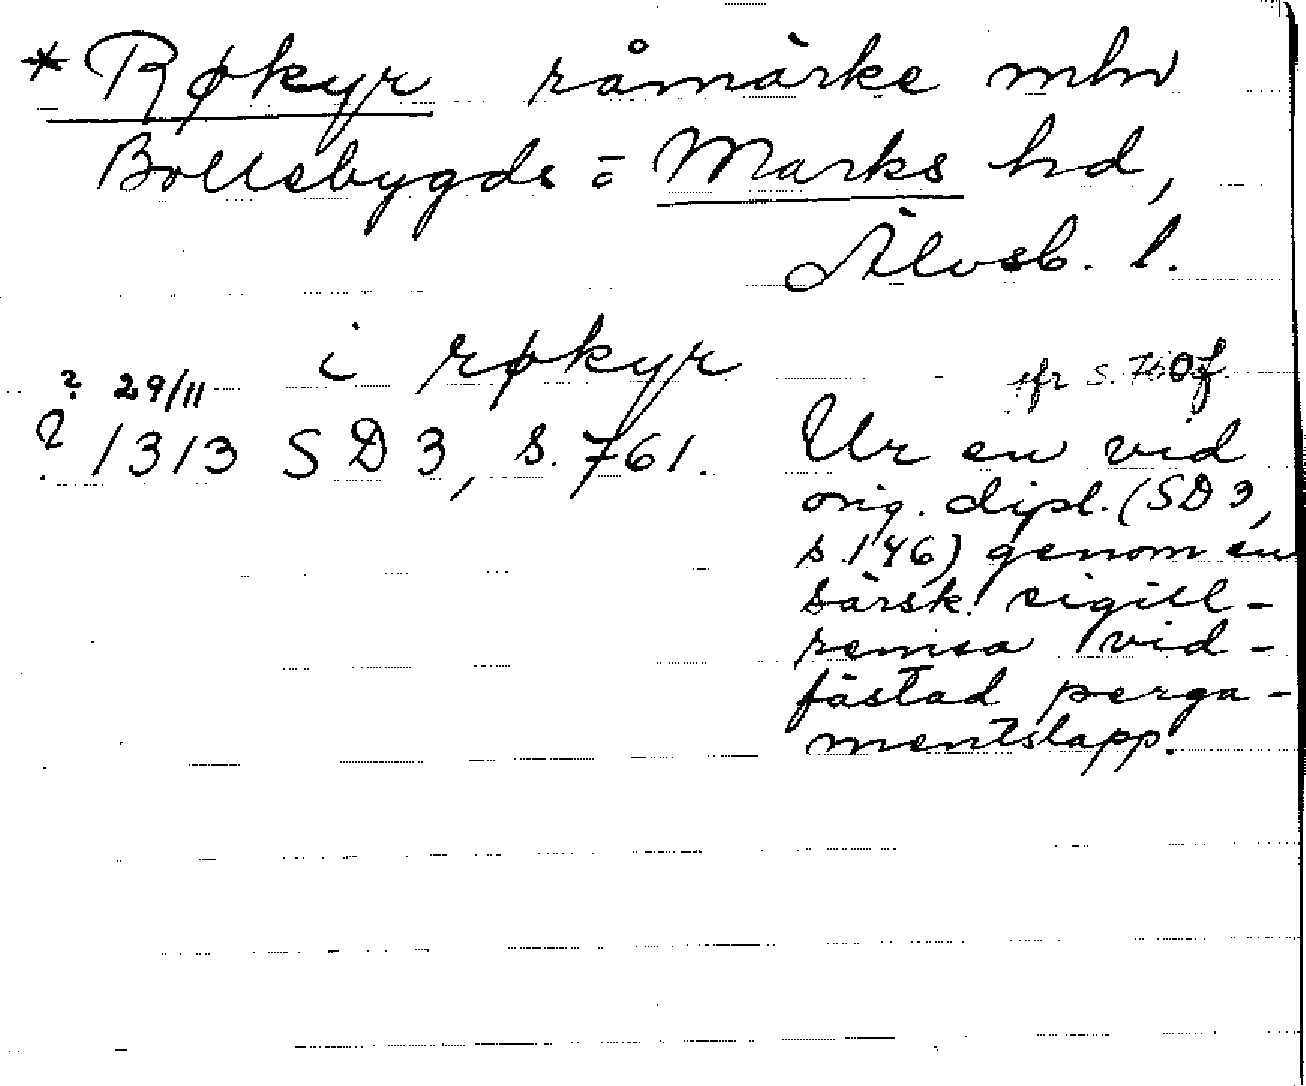 * Røkyr råmärke mln
Bollebygds = Marks hd,
Älvsb. l.
i røkyr
? 29/11
? 1313 SD 3, s. 761.
jfr s. 760f.
Ur en vid
orig. dipl. (SD 3,
s. 146) genom en
särsk. sigill-
remsa vid-
fästad perga-
mentslapp.